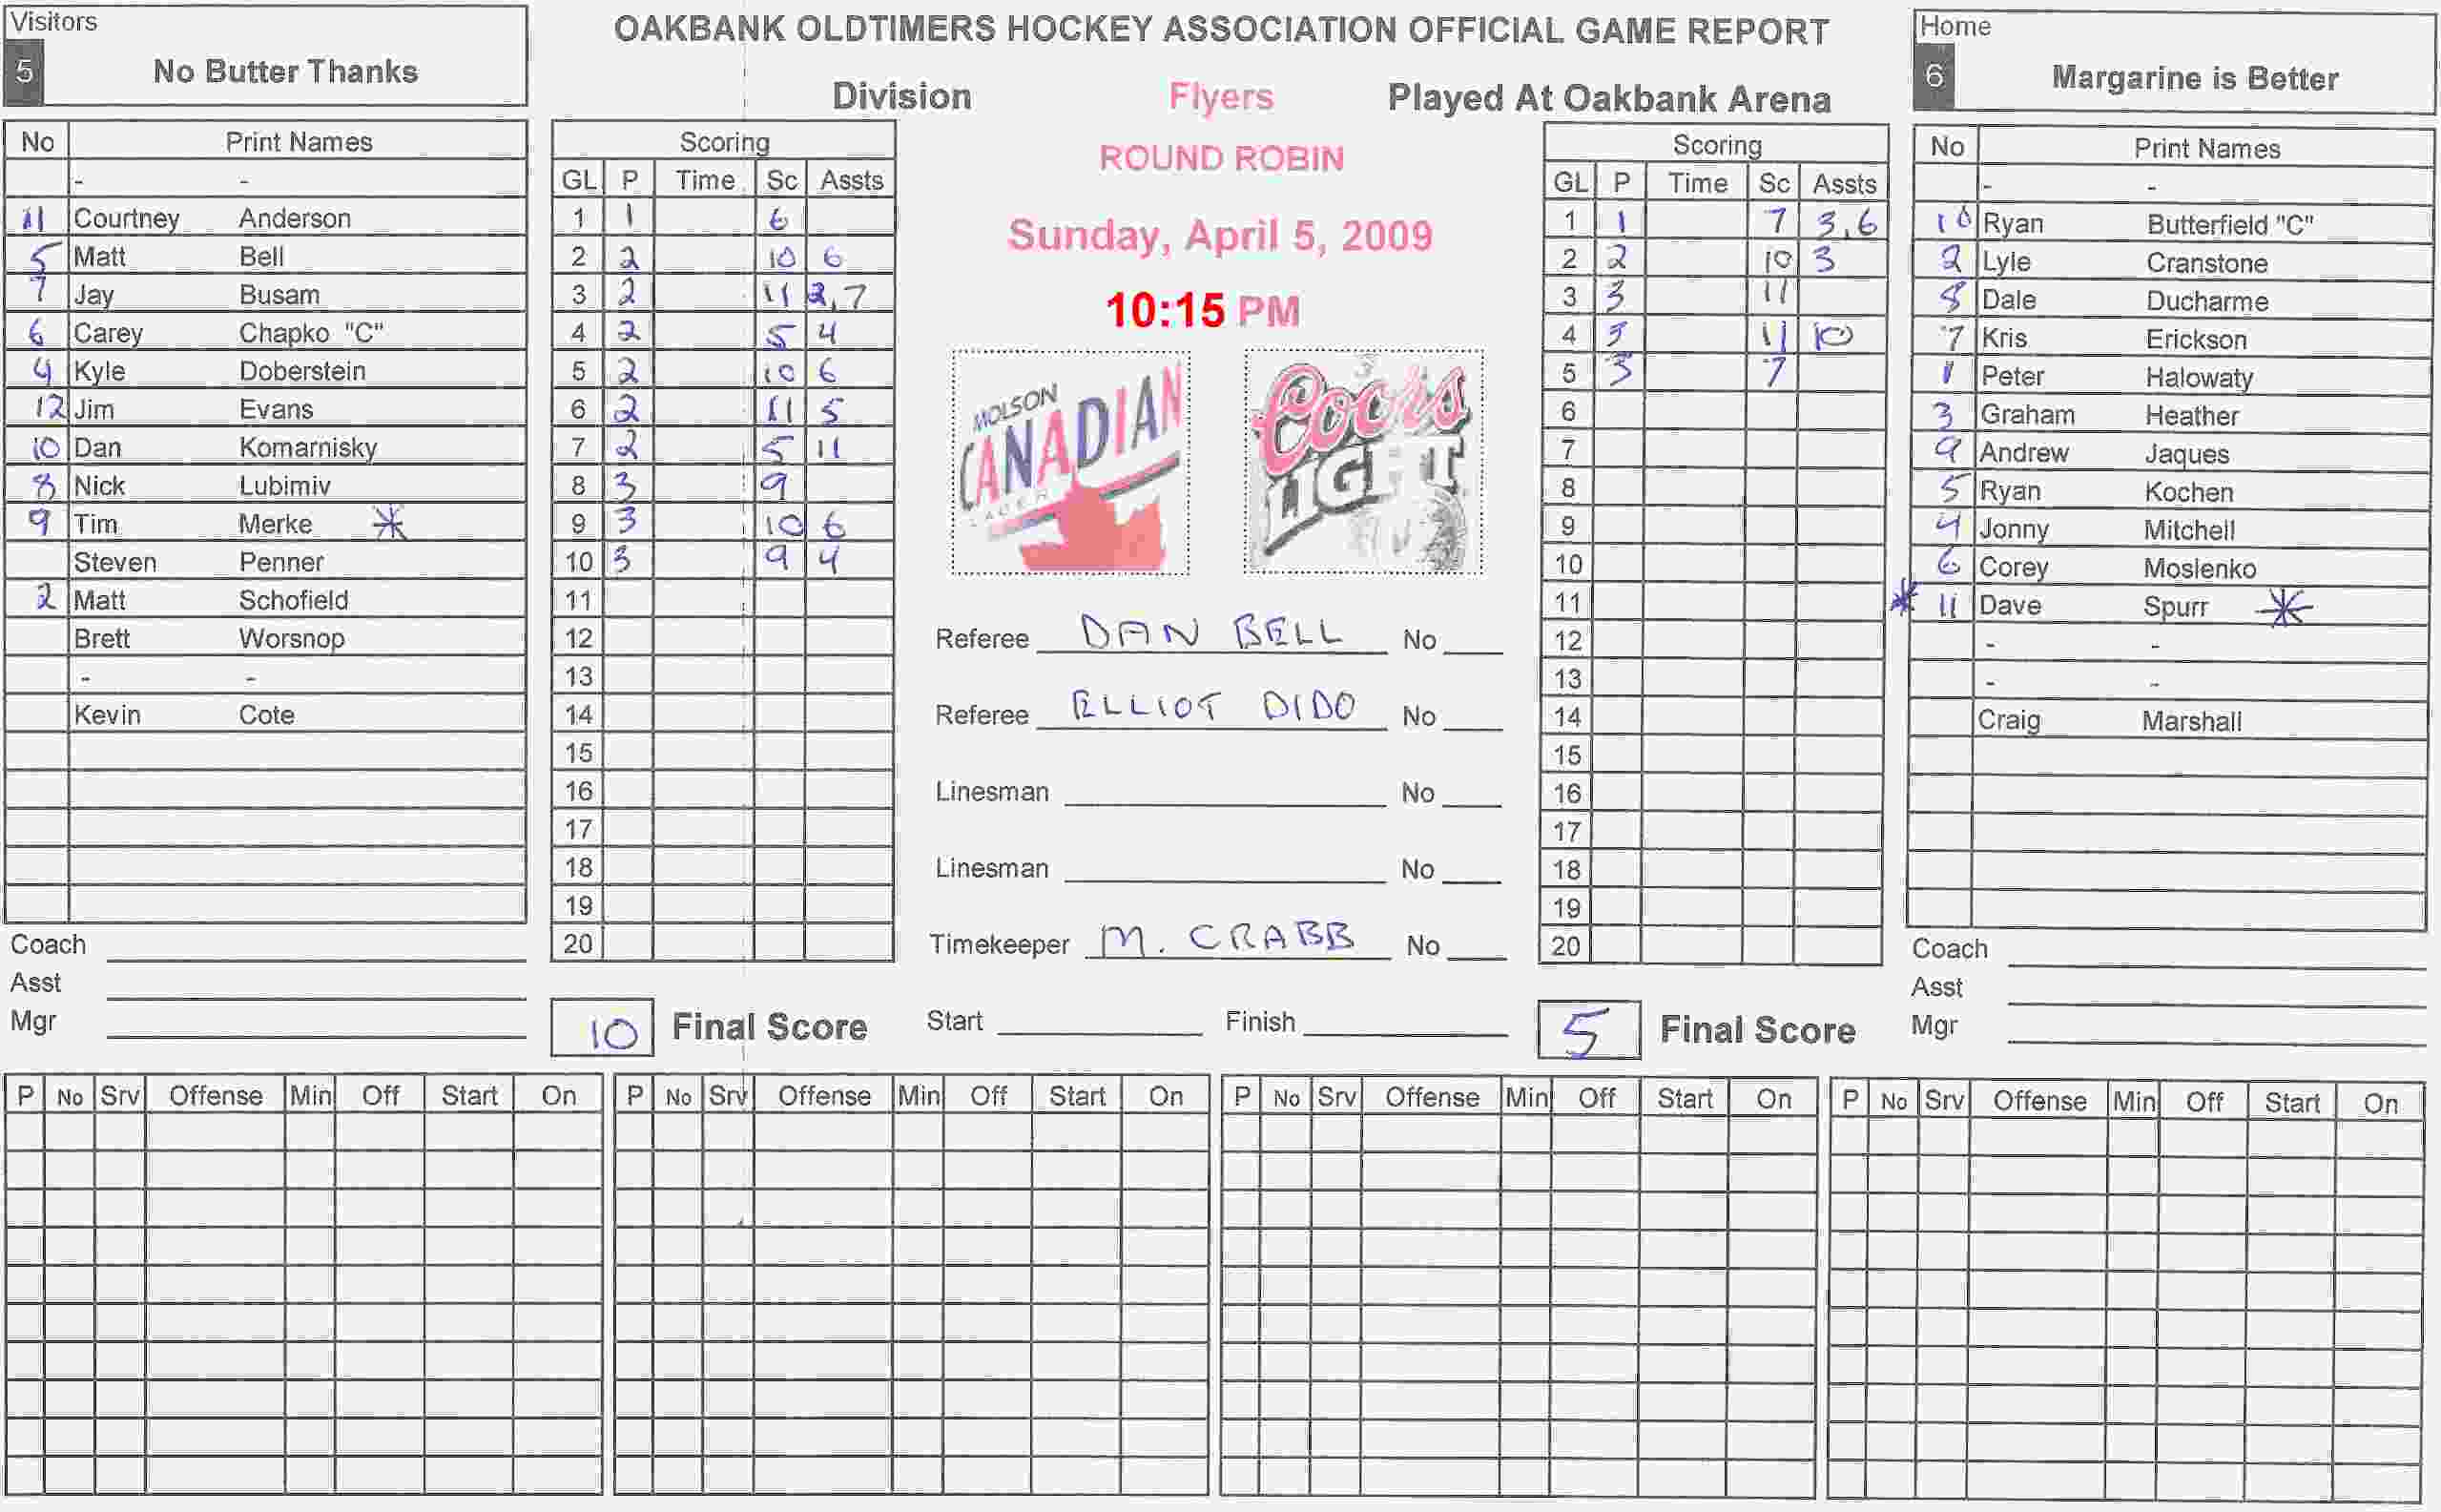 OAKBANK OLDTIMERS HOCKEY ASSOCIATION OFFICIAL GAME REPORT
Visitors
5 No Butter Thanks
Home
6 Margarine is Better
Division Flyers Played At Oakbank Arena
ROUND ROBIN
Sunday, April 5, 2009
10:15 PM
No Print Names
- -
11 Courtney Anderson
5 Matt Bell
7 Jay Busam
6 Carey Chapko "C"
4 Kyle Doberstein
12 Jim Evans
10 Dan Komarnisky
8 Nick Lubimiv
9 Tim Merke *
Steven Penner
2 Matt Schofield
Brett Worsnop
- -
Kevin Cote
Coach
Asst
Mgr
Scoring
GL P Time Sc Assts
1 1 6
2 2 10 6
3 2 11 2,7
4 2 5 4
5 2 10 6
6 2 11 5
7 2 5 11
8 3 9
9 3 10 6
10 3 9 4
11
12
13
14
15
16
17
18
19
20
10 Final Score
MOLSON
CANADIAN
LAGER
Coors
LIGHT
Referee DAN BELL No
Referee ELLIOT DIDO No
Linesman No
Linesman No
Timekeeper M. CRABB No
Start Finish
Scoring
GL P Time Sc Assts
1 1 7 3,6
2 2 10 3
3 3 11
4 3 11 10
5 3 7
6
7
8
9
10
11
12
13
14
15
16
17
18
19
20
5 Final Score
No Print Names
- -
10 Ryan Butterfield "C"
2 Lyle Cranstone
8 Dale Ducharme
7 Kris Erickson
1 Peter Halowaty
3 Graham Heather
9 Andrew Jaques
5 Ryan Kochen
4 Jonny Mitchell
6 Corey Moslenko
* 11 Dave Spurr *
- -
- -
Craig Marshall
Coach
Asst
Mgr
P No Srv Offense Min Off Start On
P No Srv Offense Min Off Start On
P No Srv Offense Min Off Start On
P No Srv Offense Min Off Start On